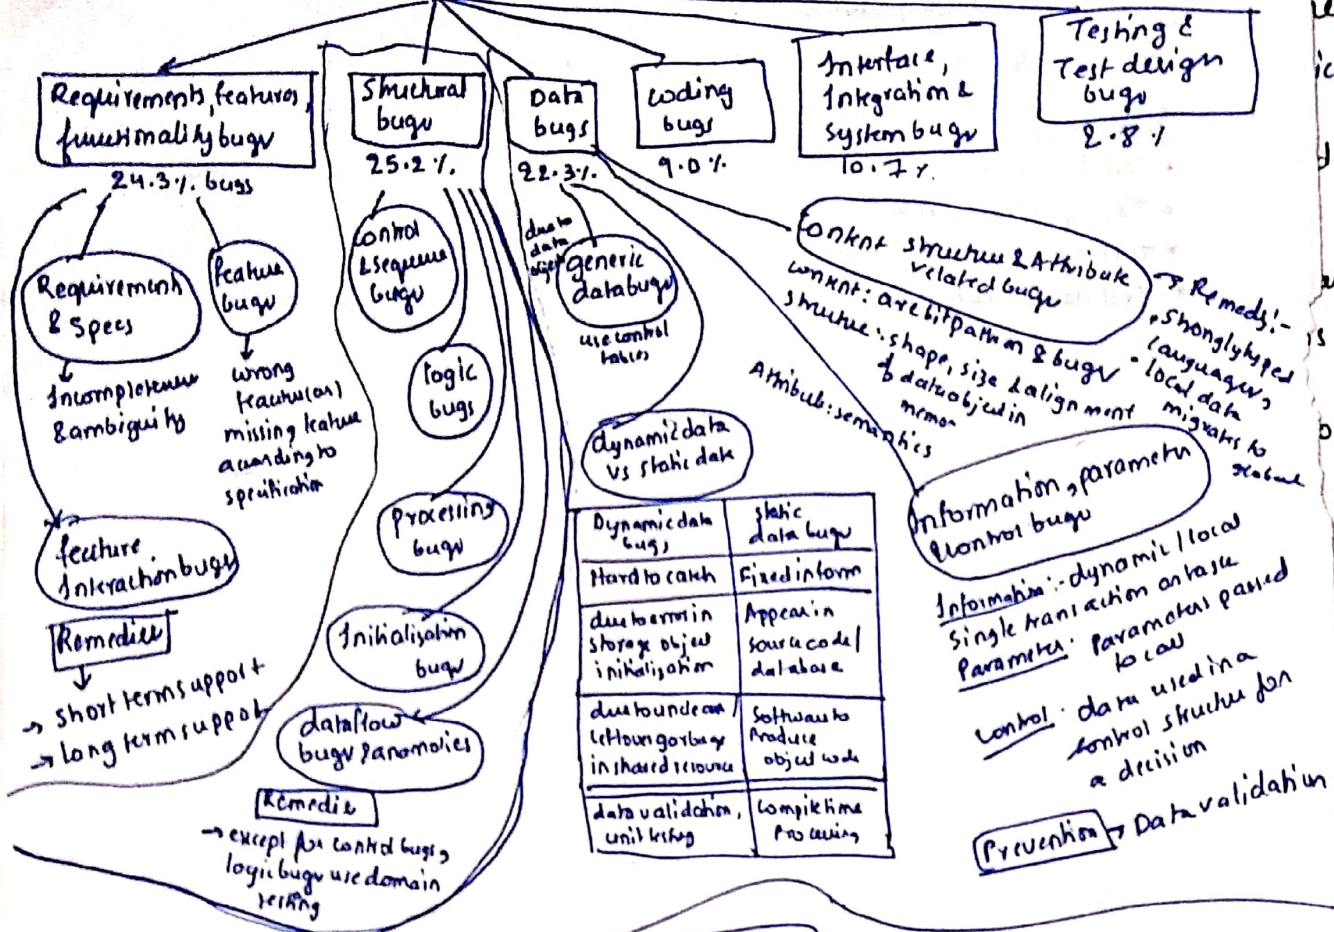 Requirements, features,
functionality bugs
24.3% bugs
Structural
bugs
25.2%
Data
bugs
22.3%
coding
bugs
9.0%
Interface,
Integration &
system bugs
10.7%
Testing &
Test design
bugs
2.8%
Requirement
& Specs
Incompleteness
& ambiguity
feature
bugs
wrong
feature (or)
missing feature
according to
specification
feature
Interaction bugs
Remedies
→ short term support
→ long term support
control
& sequence
bugs
logic
bugs
processing
bugs
Initialisation
bugs
dataflow
bugs & anomolies
Remedie
→ except for control bugs,
logic bugs use domain
testing
due to
data
object
generic
data bugs
use control
tables
dynamic data
vs static data
Dynamic data
bugs
static
data bugs
Hard to catch
Fixed in form
due to error in
storage object
initialisation
Appear in
source code/
database
due to unclean/
leftover garbage
in shared resource
Software to
Produce
object code
data validation,
unit testing
Compile time
Processing
content structure & Attribute
related bugs
content: are bit pattern & bugs
structure: shape, size & alignment
of data object in
memory
Attribute: semantics
→ Remeds:-
• Strongly typed
languages,
• local data
migrates to
global
Information, parameter
& control bugs
Information:- dynamic/local
single transaction or task
Parameter: Parameters passed
to call
control: data used in a
control structure for
a decision
Prevention → Data validation